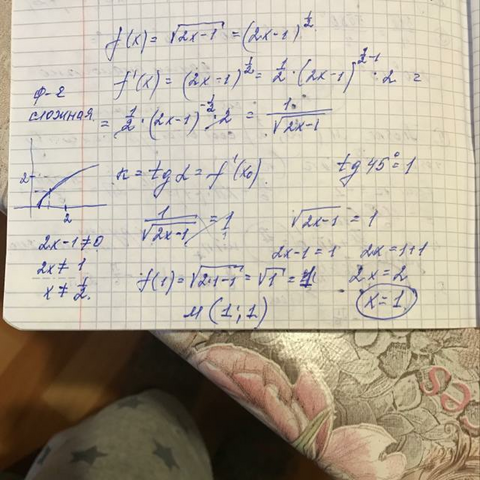 f(x) = √(2x-1) = (2x-1)^(1/2)
f'(x) = (2x-1)^(1/2) = 1/2 · (2x-1)^(1/2-1) · 2 =
ф-я
сложная
= 1/2 · (2x-1)^(-1/2) · 2 = 1/√(2x-1)
2
2
k = tg α = f'(x₀).
tg 45° = 1
1/√(2x-1) = 1/1
√(2x-1) = 1
2x-1 ≠ 0
2x ≠ 1
x ≠ 1/2.
2x-1 = 1
2x = 1+1
2x = 2
x = 1
f(1) = √(2·1-1) = √1 = 1
M (1; 1)